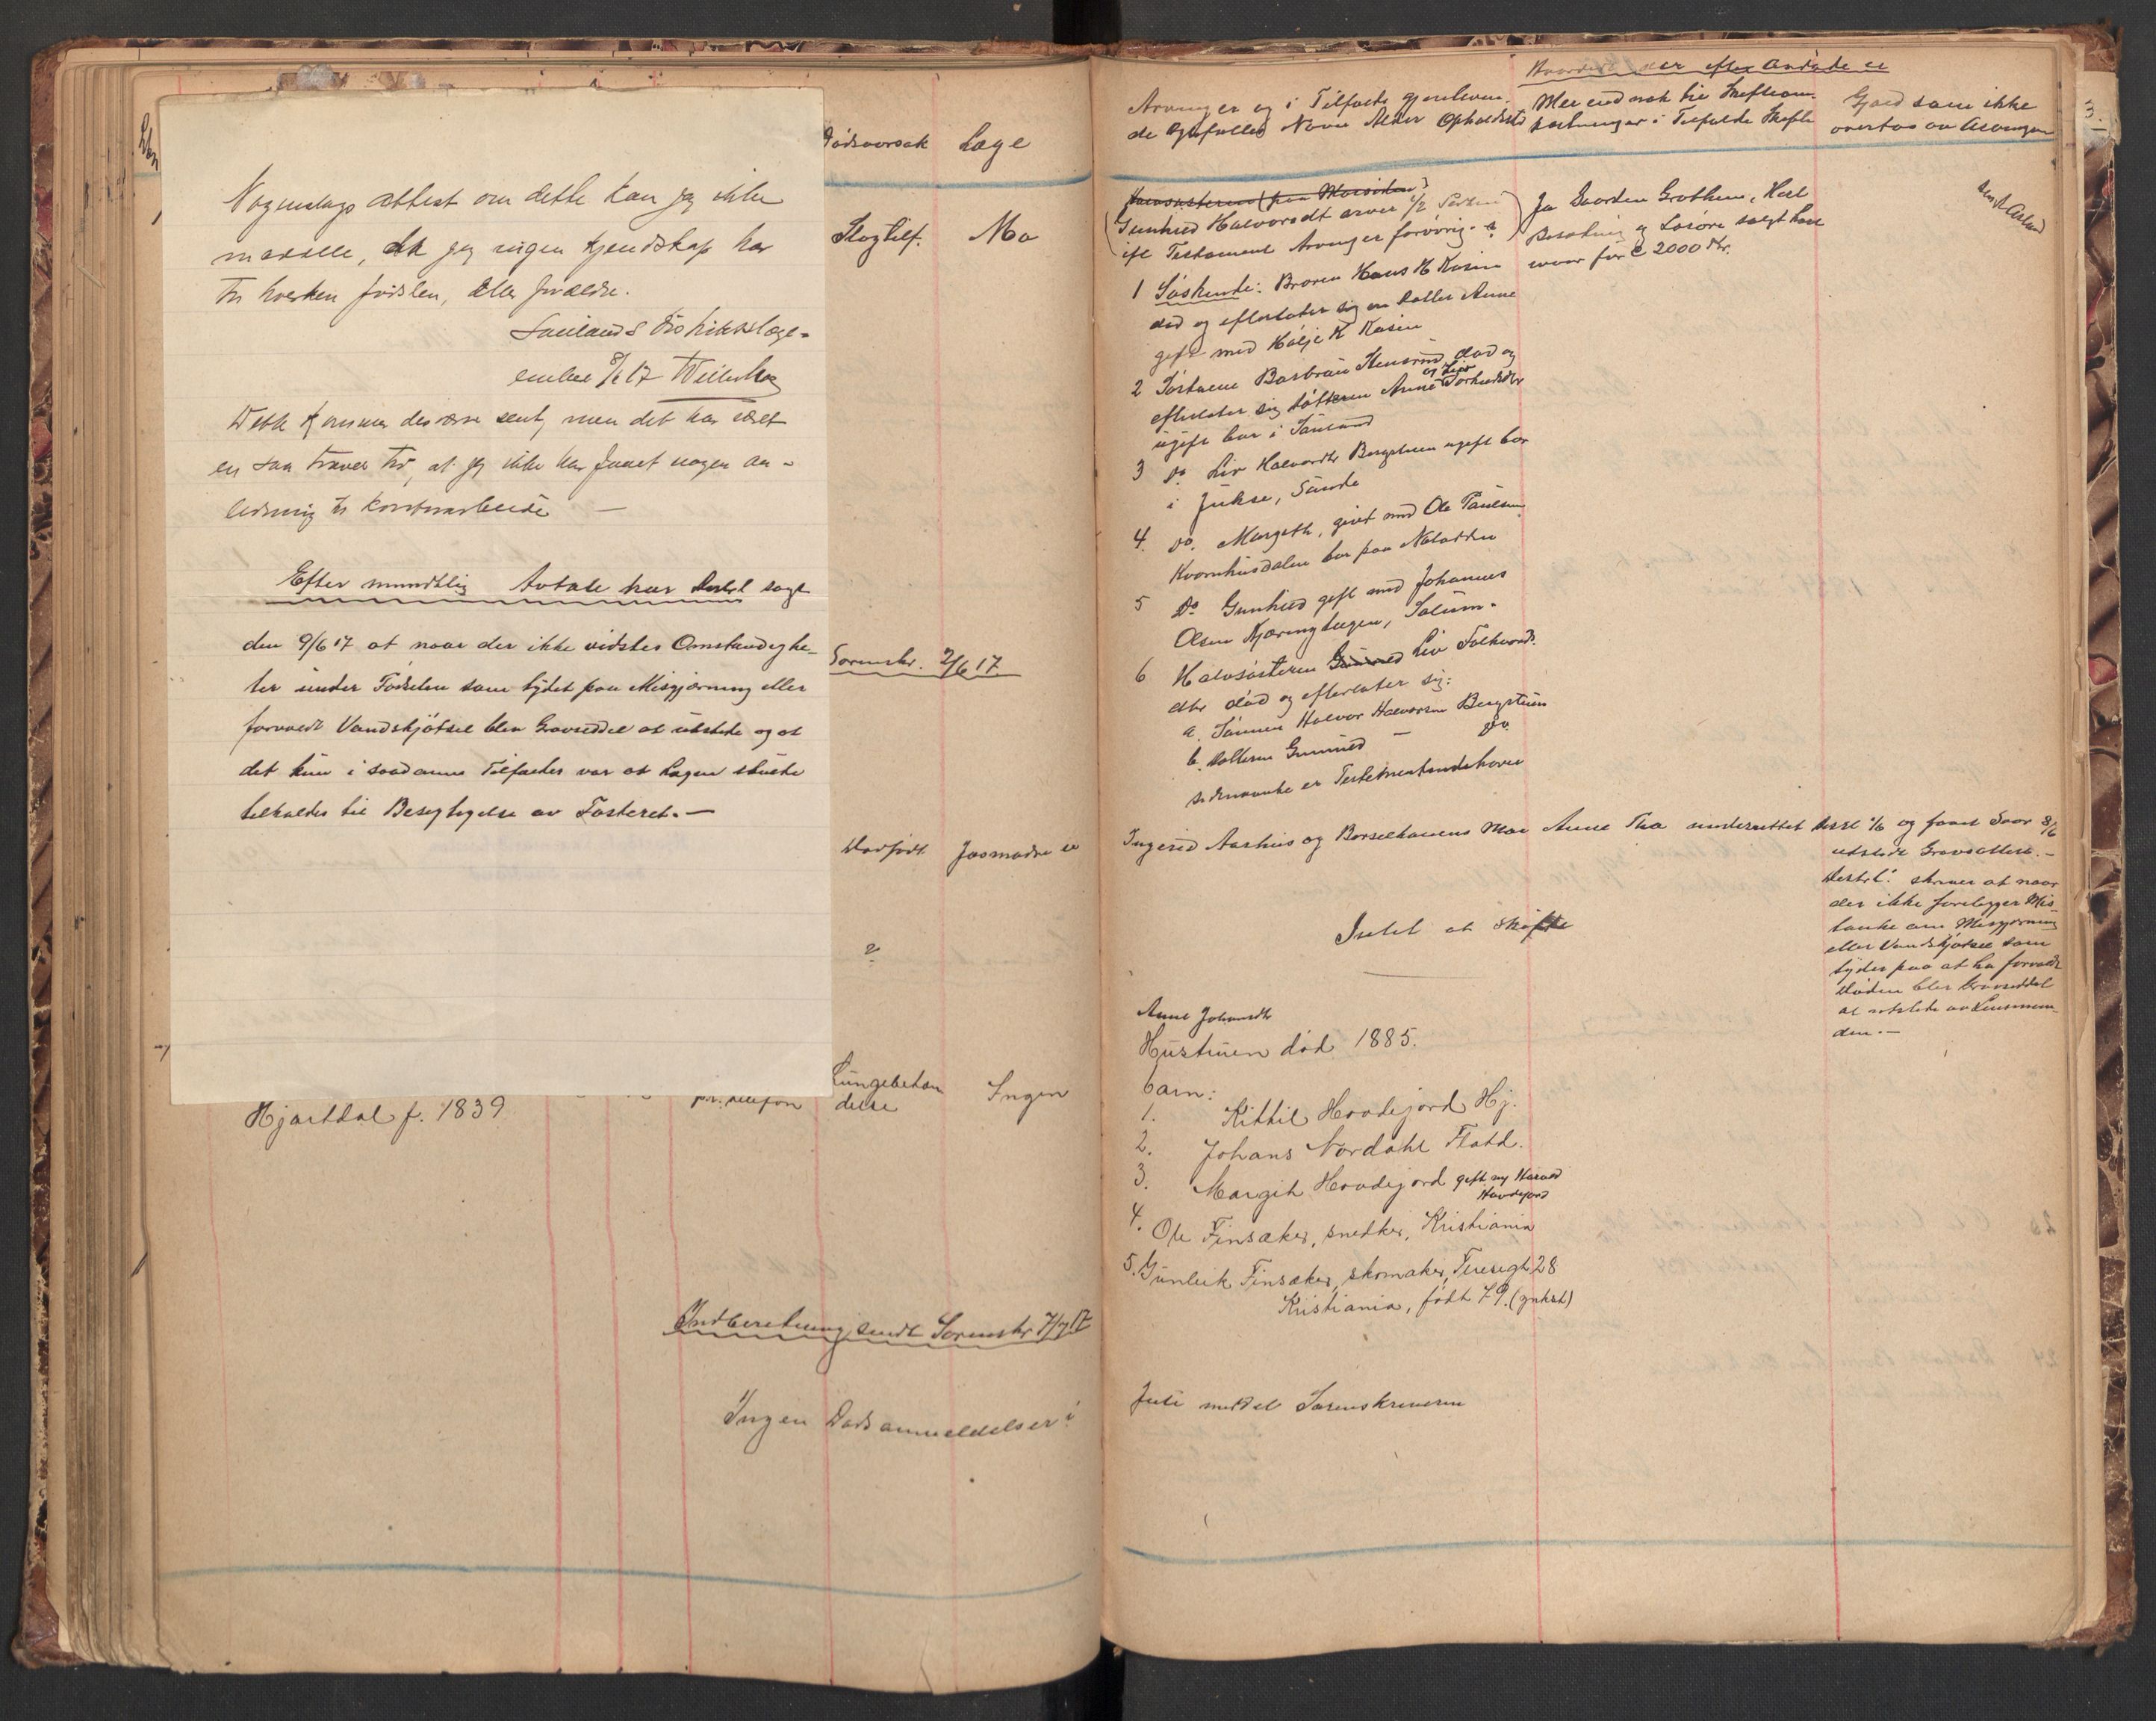 Nogenslags attest om dette kan jeg ikke
meddele, da jeg ingen kjendskap har
til hverken fødslen, eller forældre.
Saulands Distriktslæge-
embee 8/6 17
Dette kommer desværre sent, men det har været
en saa travel tid, at jeg ikke har faaet nogen an-
ledning til kontorarbeide —
Efter mundtlig Avtale har Distrl sagt
den 9/6 17 at naar der ikke vidstes Omstændighe-
ter under Fødselen som tydet paa Misgjerning eller
forvoldt Vandskjøtsel blev Gravseddel at utstede og at
det kun i saadanne Tilfælder var at Lægen skulde
tilkaldes til Besigtigelse av Fosteret. —
Hjartdal f. 1839
pr. telefon
Dødsaarsak Læge
Slagtilf. Mo
Sorenskr. 2/6 17
Dødfødt Josmødre
?
Lungebetæn
delse
Ingen
Indberetning sendt Sorenskr 7/7 17
Ingen Dødsanmeldelser i
Arvinger og i Tilfælde gjenleven-
de Egtefælles Navn Alder Opholdssted
der efter Avdøde er
Mer end nok til Skifteom-
kostninger i Tilfælde Skifte
Gjæld som ikke
overtas av Arvingene
3
Halvsøsteren (paa Morsiden)
Gunhild Halvorsdt arver 1/2 Parten
ifl Testament Arvinger forøvrig. :
1 Søskende: Broren Hans H Kasin
død og efterlater sig en datter Anne
gift med Hølje K Kasin
2 Søsteren Barbrau Stensrud død og
efterlater sig døtteren Anne og Liv
ugift bor i Sauland
3 Do Liv Halvordtr Bergstuen ugift bor
i Jukse, Sande
4. Do. Margeth, givet med Ole Paulsen
Kvernhusdalen bor paa Notodden
5 Do Gunhild gift med Johannes
Olsen Kjæringteigen, Solum.
6 Halvsøsteren Gunnild Liv Folkvords
dtr død og efterlater sig:
a. Sønnen Halvor Halvorsen Bergstuen
b. datteren Gunnild — do
sidstnævnte er Testamentindehaver
Ja Gaarden Grothem, Hest
Besætning og Løsøre solgt Last
svar for C 2000 Kr.
Ingerid Aarhus og Barselkonens Mor Anne Tho underrettet Distrl 1/6 og faaet Svar 8/6
utstedt Gravattest. —
Distrl: skriver at naar
der ikke foreligger Mis-
tanke om Misgjerning
eller Vandskjøtsel som
tyder paa at ha forvoldt
Døden blev Gravseddel
at utstede av Lensman-
den. —
Intet at skifte
Anne Johansdtr
Hustruen død 1885.
barn:
1. Kittil Hovdejord Hj.
2. Johans Nordahl Flatd.
3. Margit Hovdejord gift m/ Harald
Hovdejord
4. Ole Finsaker, snedker, Kristiania
5. Gunleik Finsaker, skomaker, Teresegt 28
Kristiania, født 79. (yngst)
Juli meddel Sorenskriveren